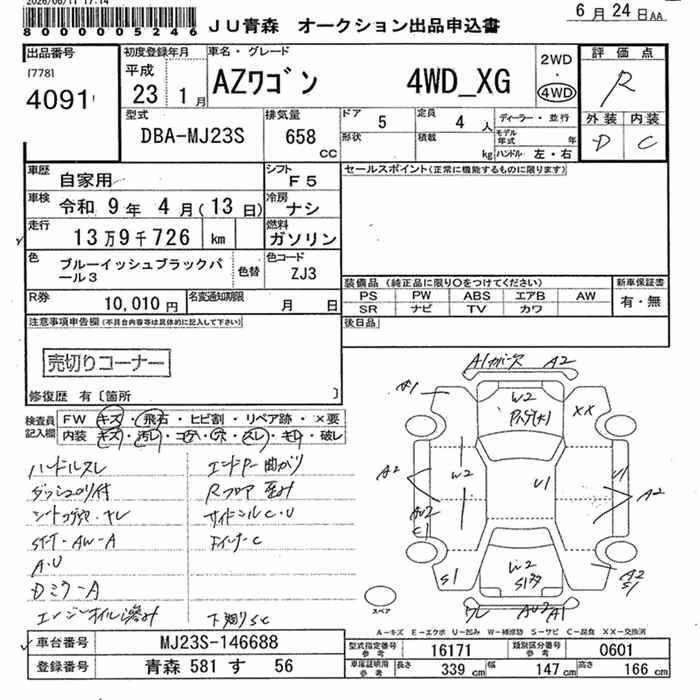 2026/06/11 17:14
8000005246
JU青森 オークション出品申込書
6月24日AA
出品番号
[778]
4091
初度登録年月
平成
23 1月
車名・グレード
AZワゴン 4WD_XG
2WD
・
4WD
評価点
R
外装 内装
D C
型式
DBA-MJ23S
排気量
658
CC
ドア
5
定員
4人
形状
積載
kg
ディーラー・並行
モデル年式 年
ハンドル 左・右
車歴
自家用
シフト
F5
セールスポイント(正常に機能するものに限ります)
車検
令和 9年 4月(13日)
冷房
ナシ
走行
13万9千726 km
燃料
ガソリン
色
ブルーイッシュブラックパール3
色替
色コード
ZJ3
装備品 (純正品に限り○をつけてください)
PS PW ABS エアB AW
SR ナビ TV カワ
新車保証書
有・無
R券
10,010円
名変通知期限
月 日
後日品
注意事項申告欄(不具合内容等は具体的に記入して下さい)
売切りコーナー
修復歴 有〔箇所 〕
検査員記入欄
FW キズ・飛石・ヒビ割・リペア跡・×要
内装 キズ・汚レ・コゲ・穴・スレ・キレ・破レ
ハンドルスレ
エンドP曲がり
Rフロア歪み
サイドシルC・U
ST-T・AW-A
A・U
DミラーA
エンジンオイル滲み
下廻りSC
A1 カバー欠 A2
W2
XX
A2
W2
U1
U1
A2
AU2
C1
S1
W2
A2
S1
AU2 A1
スペア
A-キズ E-エクボ U-凹み W-補修跡 S-サビ C-腐食 XX-交換済
車台番号
MJ23S-146688
登録番号
青森 581 す 56
型式指定番号 参考
16171
類別区分番号 参考
0601
車庫証明用 参考
長さ 339 cm
幅 147 cm
高さ 166 cm